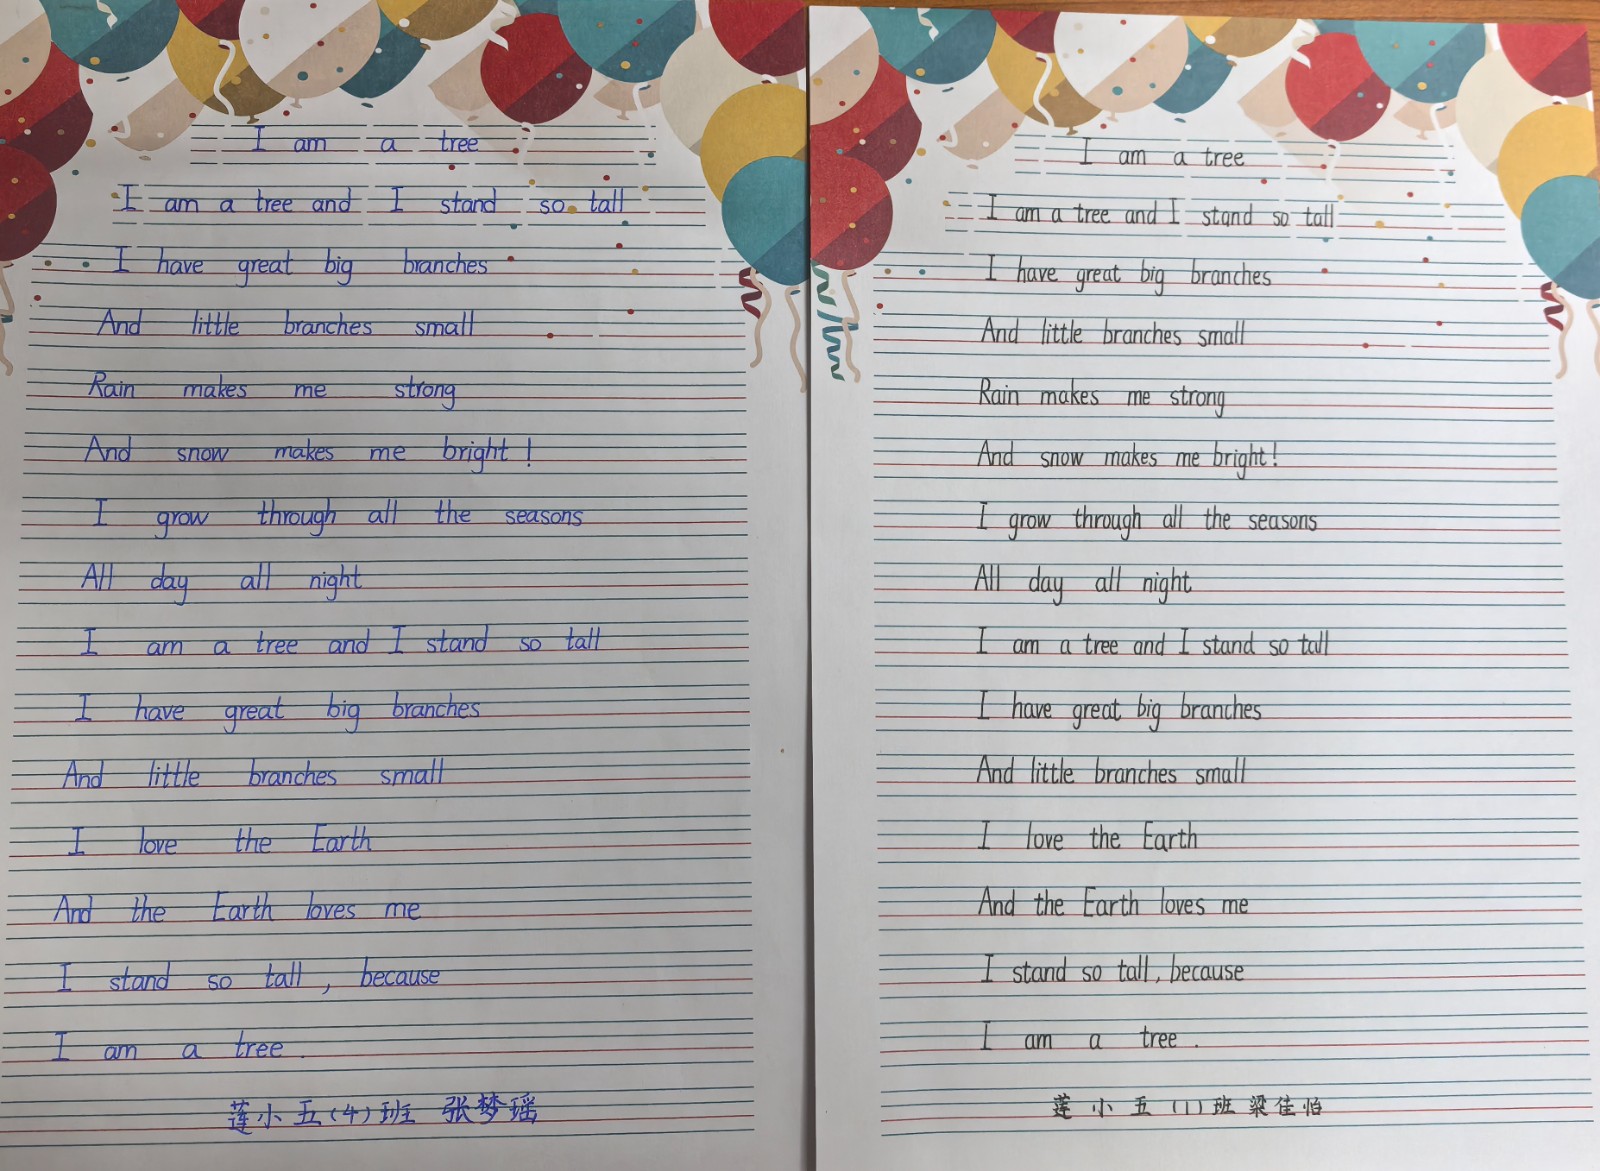 I am a tree
I am a tree and I stand so tall
I have great big branches
And little branches small
Rain makes me strong
And snow makes me bright!
I grow through all the seasons
All day all night
I am a tree and I stand so tall
I have great big branches
And little branches small
I love the Earth
And the Earth loves me
I stand so tall, because
I am a tree.
莲小五(4)班 张梦瑶
I am a tree
I am a tree and I stand so tall
I have great big branches
And little branches small
Rain makes me strong
And snow makes me bright!
I grow through all the seasons
All day all night
I am a tree and I stand so tall
I have great big branches
And little branches small
I love the Earth
And the Earth loves me
I stand so tall, because
I am a tree.
莲小五(1)班梁佳怡